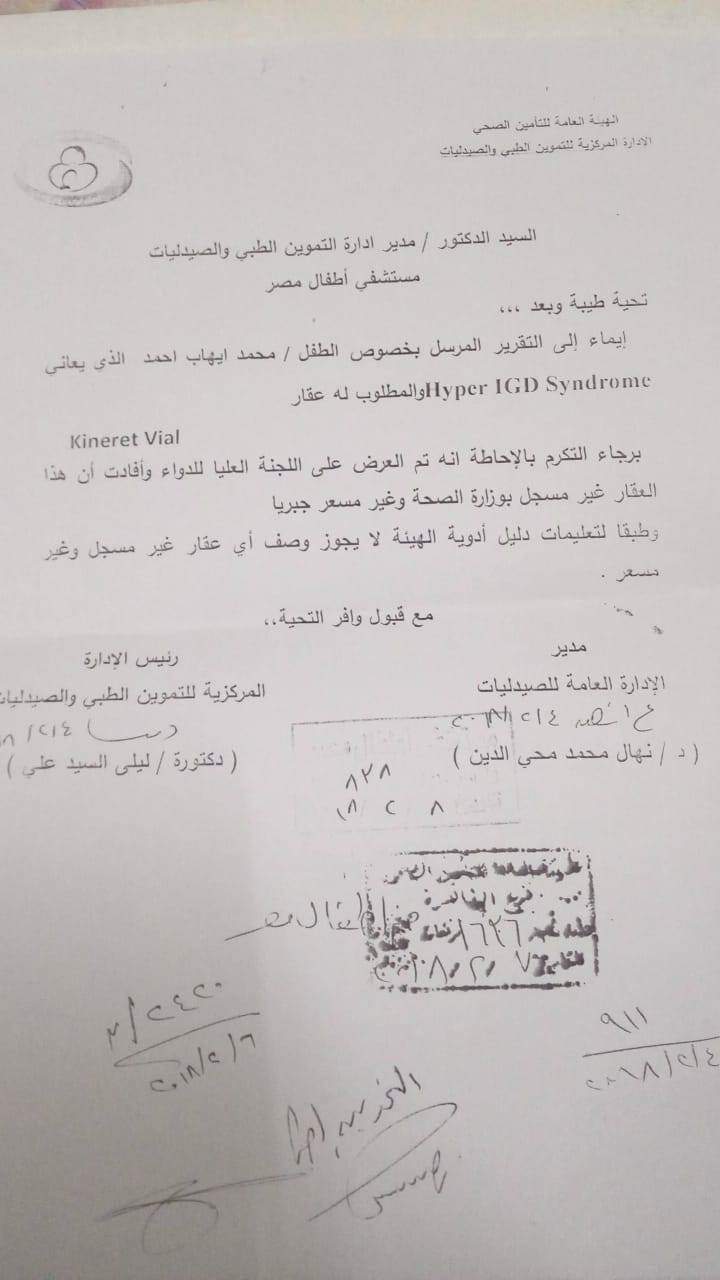 الهيئة العامة للتأمين الصحي
الإدارة المركزية للتموين الطبي والصيدليات
السيد الدكتور / مدير ادارة التموين الطبي والصيدليات
مستشفي أطفال مصر
تحية طيبة وبعد ،،،
إيماء إلى التقرير المرسل بخصوص الطفل / محمد ايهاب احمد الذي يعاني
Hyper IGD Syndrome والمطلوب له عقار
Kineret Vial
برجاء التكرم بالإحاطة انه تم العرض على اللجنة العليا للدواء وأفادت أن هذا
العقار غير مسجل بوزارة الصحة وغير مسعر جبريا
وطبقا لتعليمات دليل أدوية الهيئة لا يجوز وصف أي عقار غير مسجل وغير
مسعر .
مع قبول وافر التحية،،
مدير
الإدارة العامة للصيدليات
٢٠١٨/٢/٤
( د / نهال محمد محي الدين )
رئيس الإدارة
المركزية للتموين الطبي والصيدليات
( دكتورة / ليلى السيد علي )
٨٢٨
٨ ٢ ١٨
القاهرة
١٦٢٦
٢٠١٨/٢/٧
أطفال مصر
٢٤٢٠/٣
٢٠١٨/٢/٦
٩١١
٢٠١٨/٢/٤